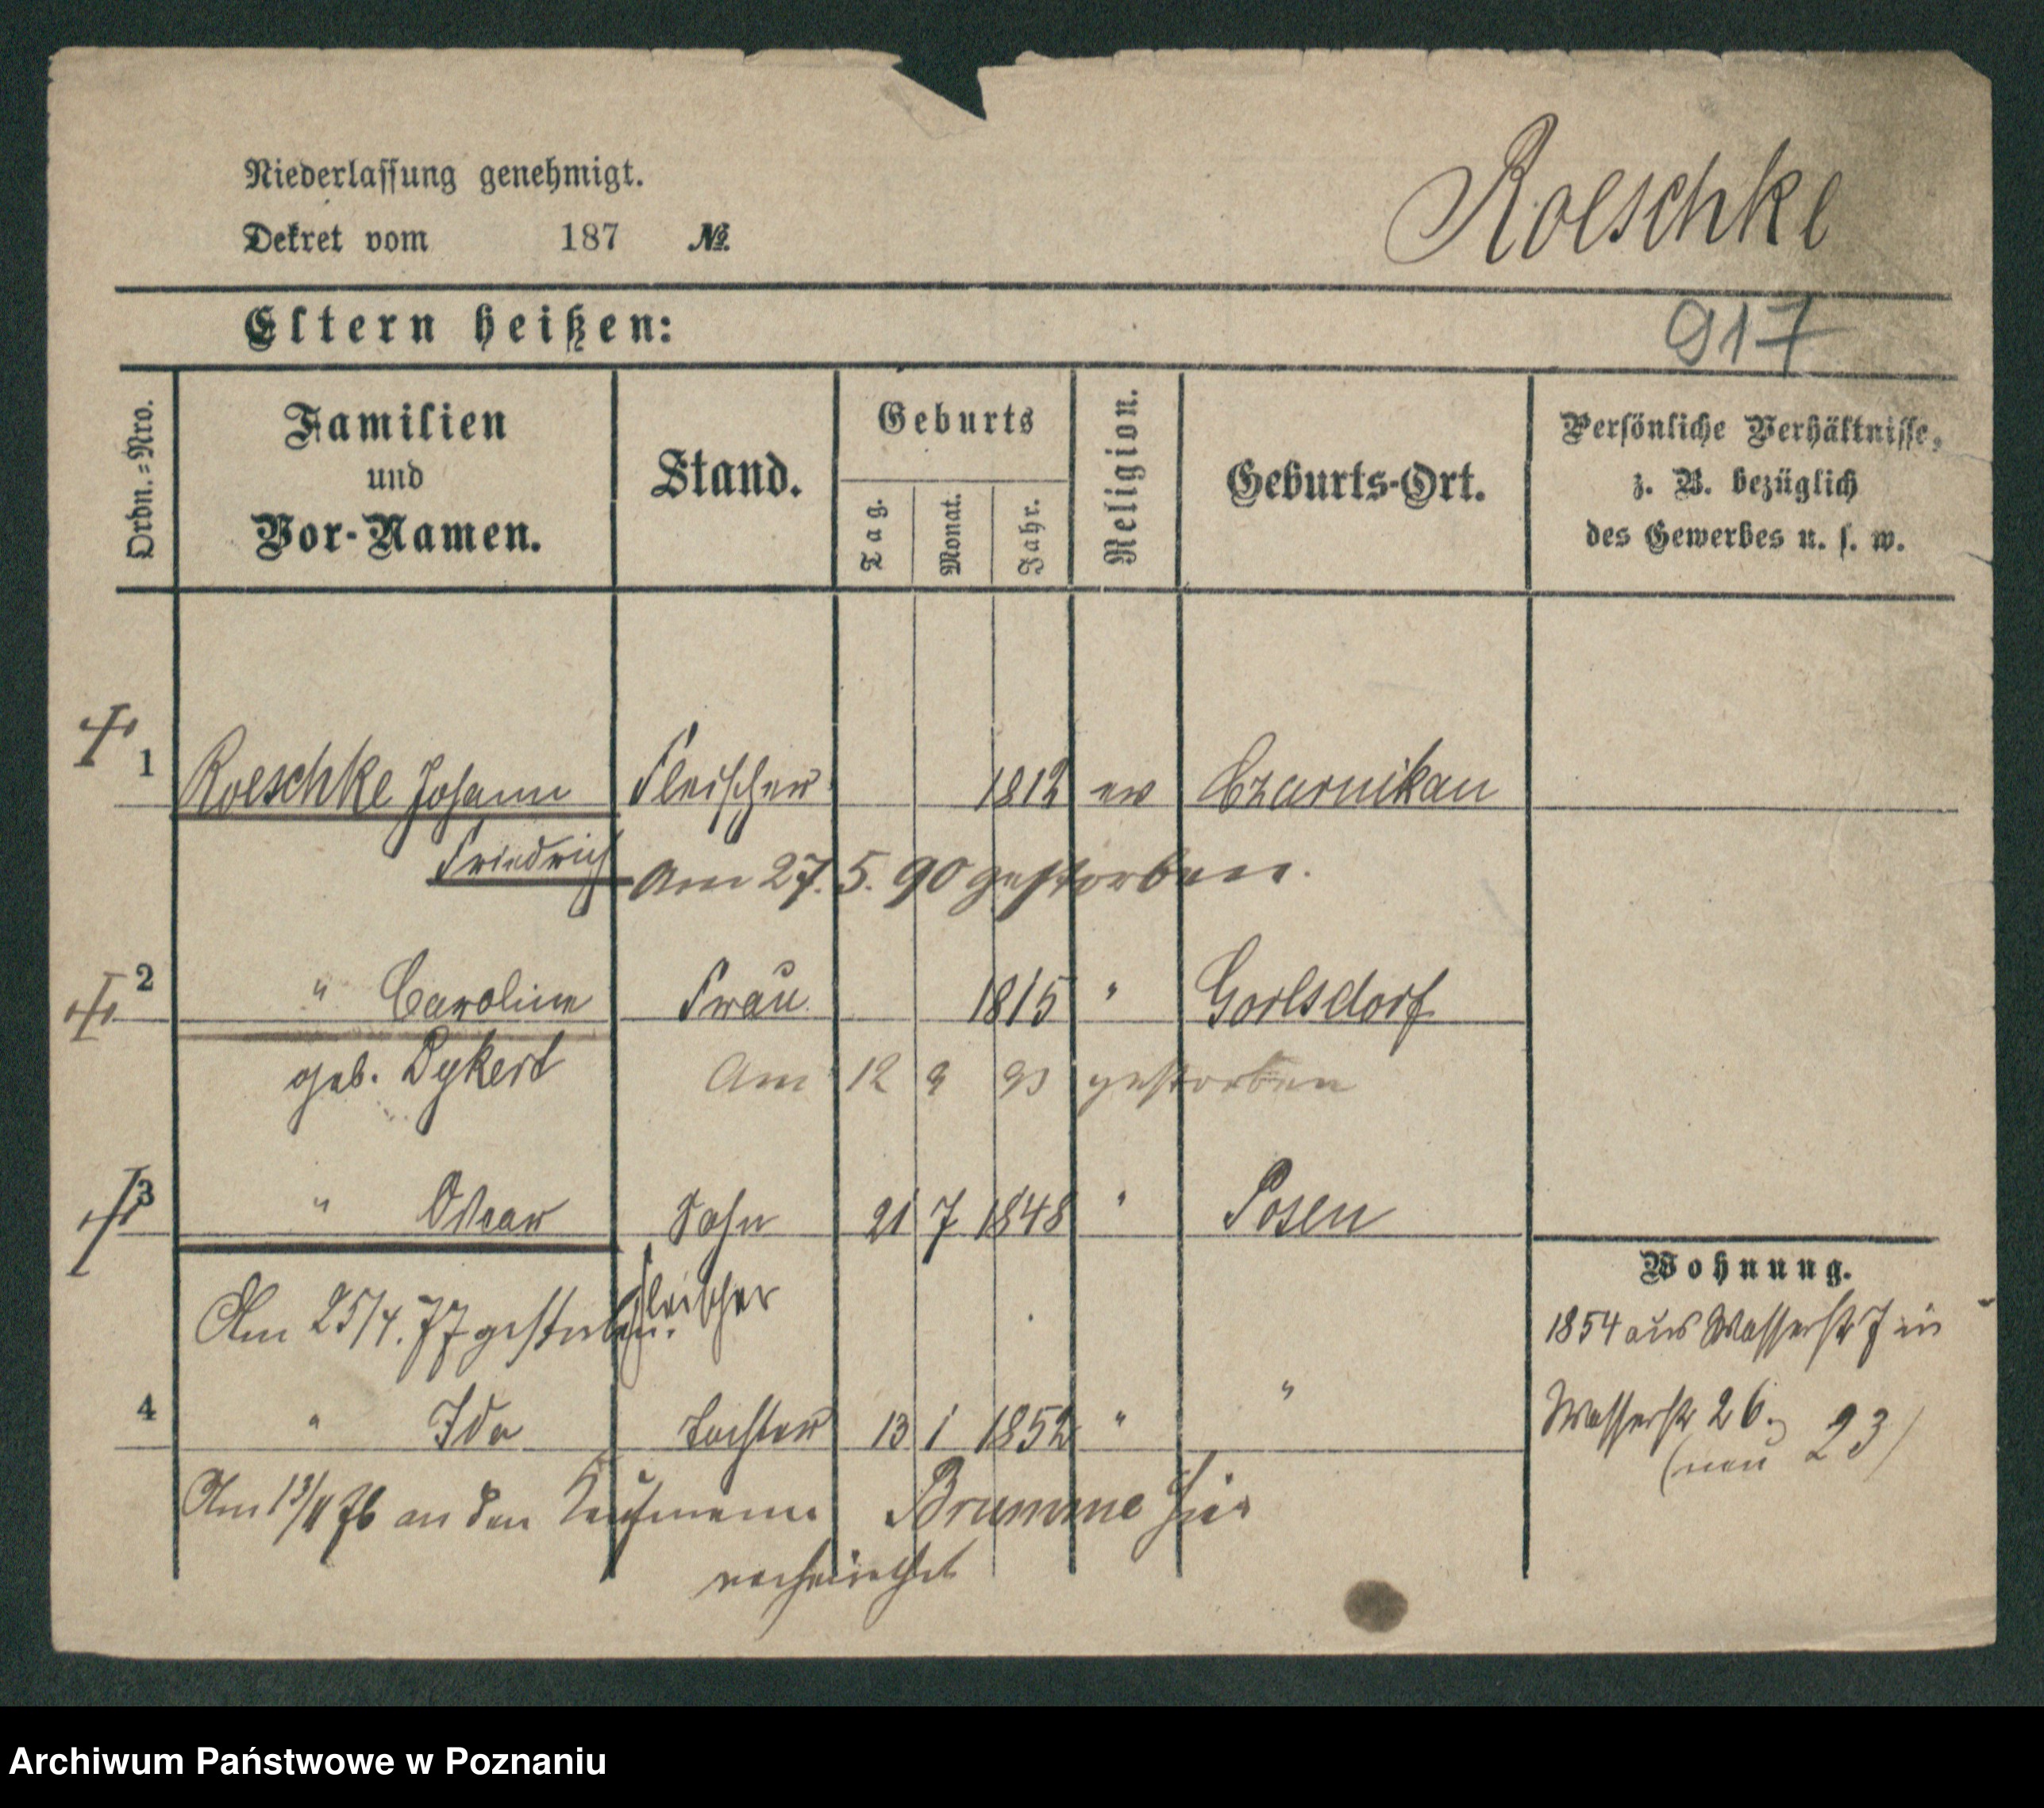 Niederlassung genehmigt.
Roeschke
Dekret vom 187 №.
Eltern heißen:
917
Ordn.-Nro.
Familien
und
Vor-Namen.
Stand.
Geburts
Tag.
Monat.
Jahr.
Religion.
Geburts-Ort.
Persönliche Verhältnisse,
z. B. bezüglich
des Gewerbes u. s. w.
1 Roeschke Johann Fleischer 1812 ev Czarnikau
Friedrich Am 27. 5. 90 gestorben.
2 " Caroline Frau 1815 " Gorlsdorf
geb. Dykert Am 12 gestorben
3 " Oscar Sohn 21 7 1848 " Posen
Fleischer
Am 25/4. 77 gestorben.
Wohnung.
1854 aus Wasserstr 7 in
Wasserstr 26.
(neu 23)
4 " Ida Tochter 13 1 1852 " "
Am 13/4 76 an den Kaufmann Brumme hier
verheirathet
Archiwum Państwowe w Poznaniu